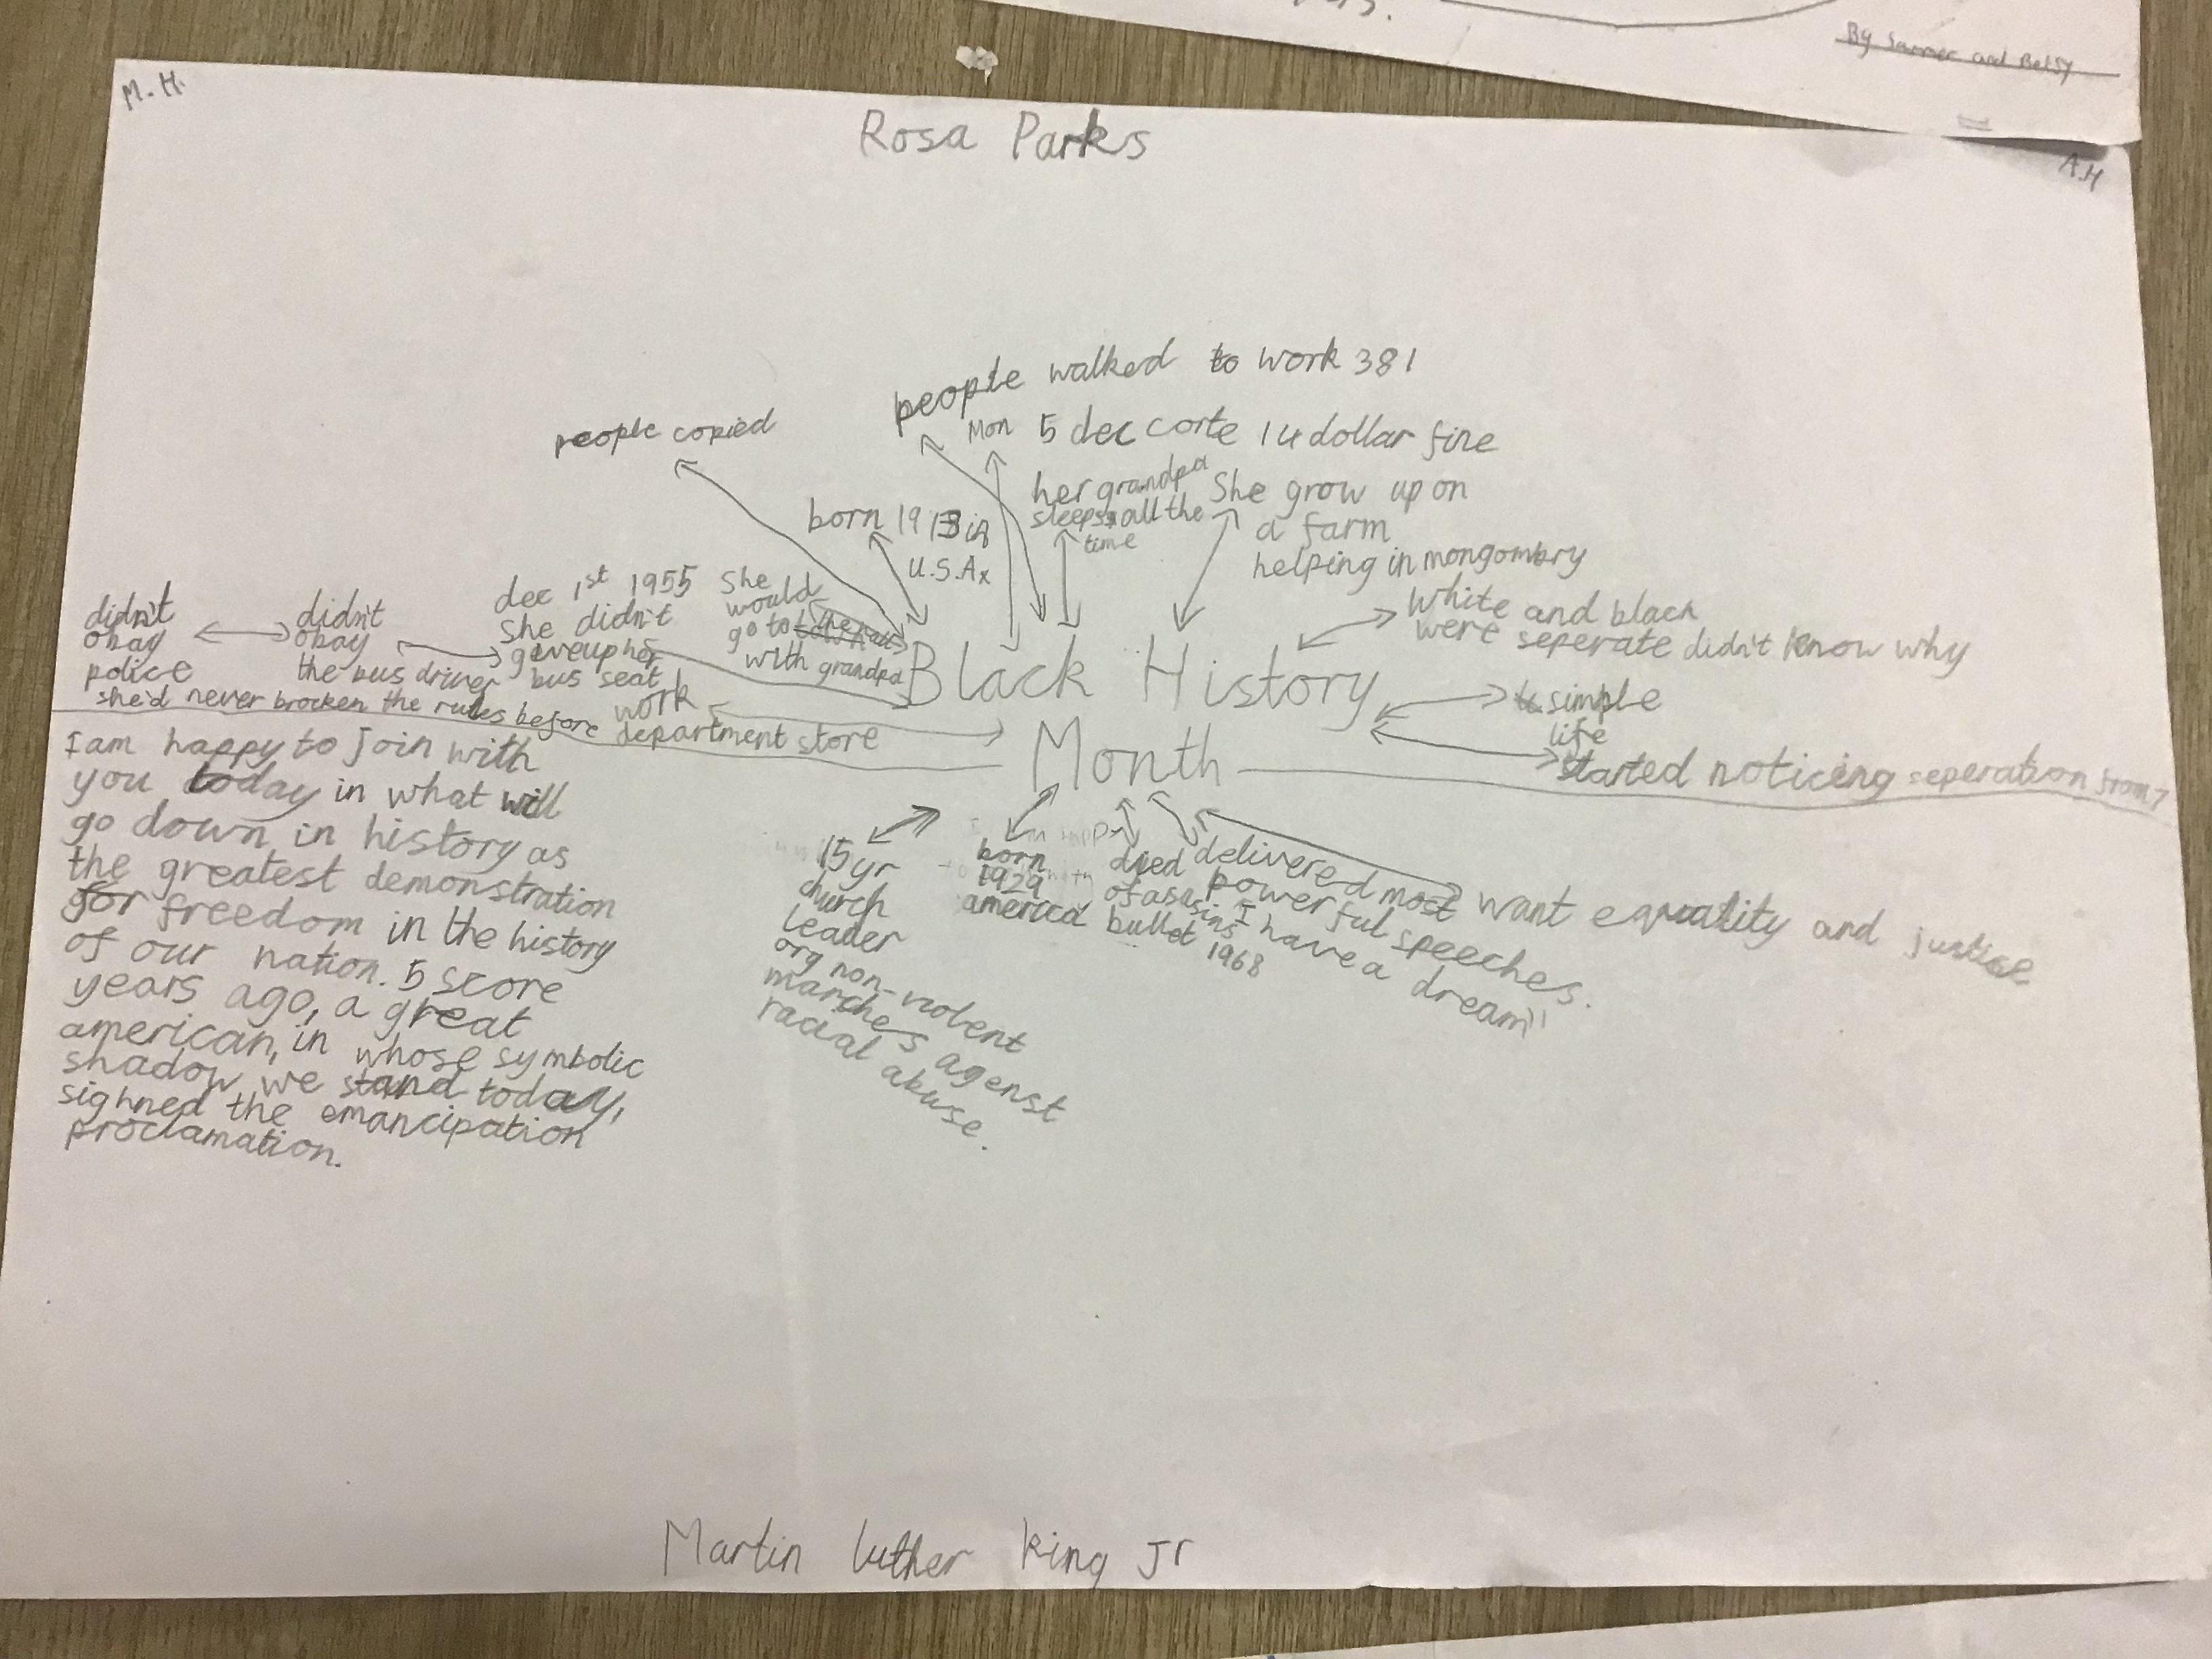 By Sammer and Betsy
M.H.
A.H
Rosa Parks
people walked to work 381
people copied
Mon 5 dec corte 14 dollar fine
born 1913 in
U.S.A
her grandpa
sleeps all the
time
She grow up on
a farm
helping in mongombry
White and black
were seperate didn't know why
simple
life
started noticing seperation from 7
didn't
obay
police
didn't
obay
the bus driver
dec 1st 1955
She didn't
giveup her
bus seat
She
would
go to
with grandpa
she'd never brocken the rules before
work
department store
Black History
Month
I am happy to join with
you today in what will
go down in history as
the greatest demonstration
for freedom in the history
of our nation. 5 score
years ago, a great
american, in whose symbolic
shadow we stand today,
sighned the emancipation
proclamation.
15yr
church
leader
org non-violent
marches agenst
racial abuse.
born
1929
america
died
of asasins
bullet 1968
delivered most
powerful speeches.
I have a dream"
want equality and justice
Martin luther king Jr